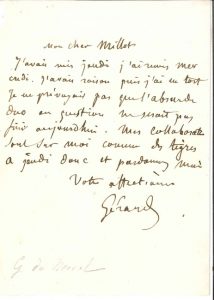 Mon cher Millot
J'avais mis jeudi j'ai remis mer
credi. J'avais raison puis j'ai eu tort
Je ne prévoyais pas que l'absurde
duo en question ne serait pas
fini aujourd'hui. Mes collaborateurs
sont sur moi comme des tigres
à jeudi donc et pardonnez moi
Votre affectionné
Gérard
G. de Nerval